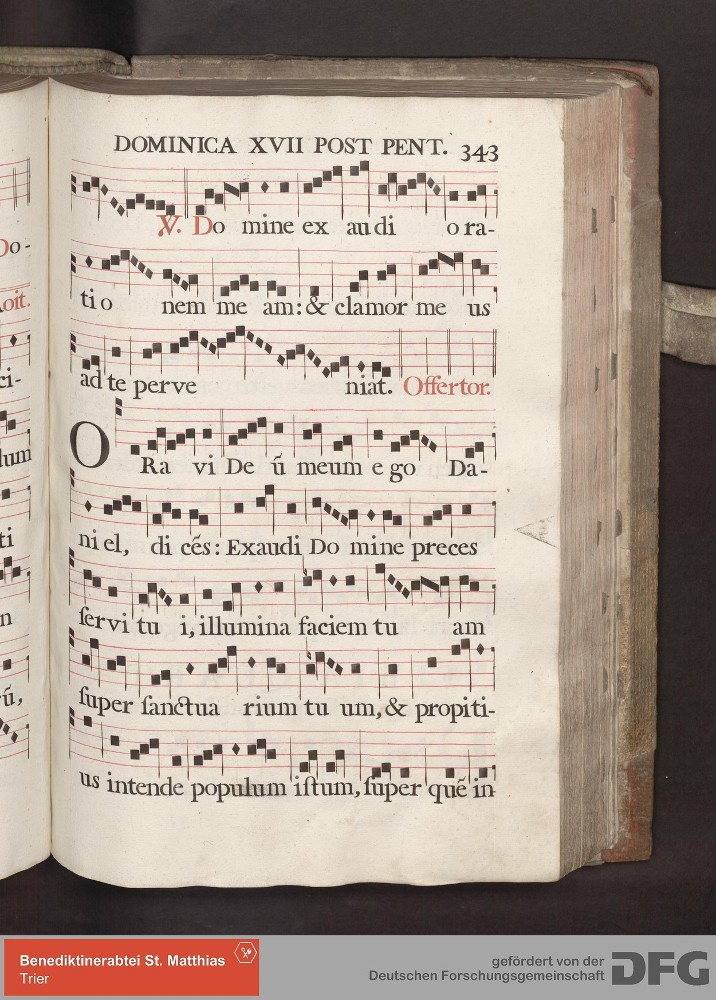 DOMINICA XVII POST PENT. 343
℣. Do mine ex au di o ra-
ti o nem me am: & clamor me us
ad te perve niat. Offertor.
O Ra vi De ũ meum e go Da-
ni el, di cẽs: Exaudi Do mine preces
ſervi tu i, illumina faciem tu am
ſuper ſanctua rium tu um, & propiti-
us intende populum iſtum, ſuper quẽ in
Do-
oit.
ci-
lum
ti
n
rũ,
Benediktinerabtei St. Matthias
Trier
gefördert von der
Deutschen Forschungsgemeinschaft
DFG